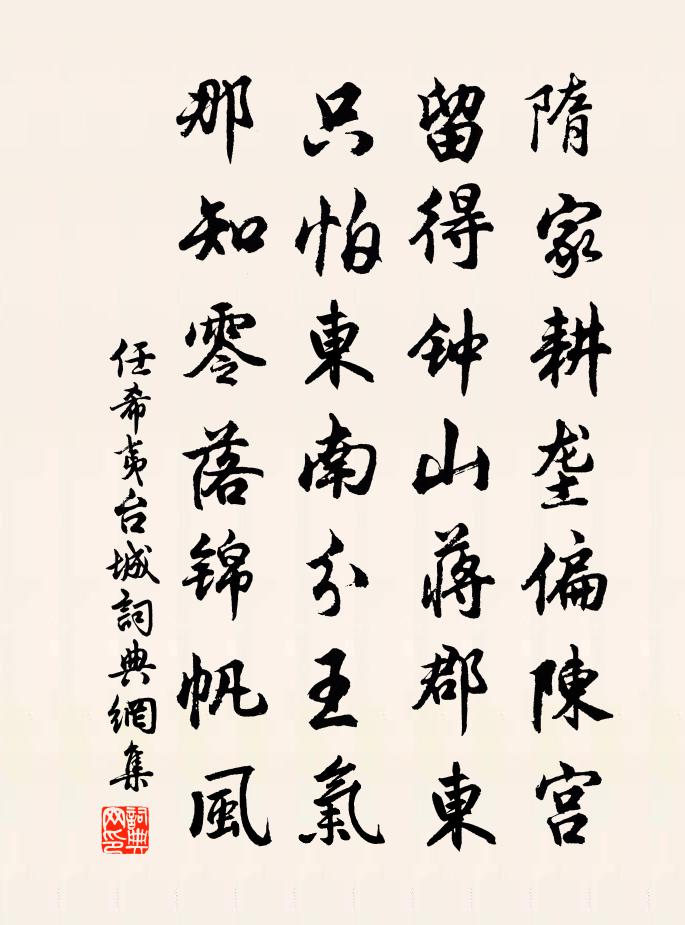 隋家耕垄偏陳宫
留得钟山蒋郡東
只怕東南分王氣
那知零落锦帆風
任希夷台城詞典網集
詞典網印